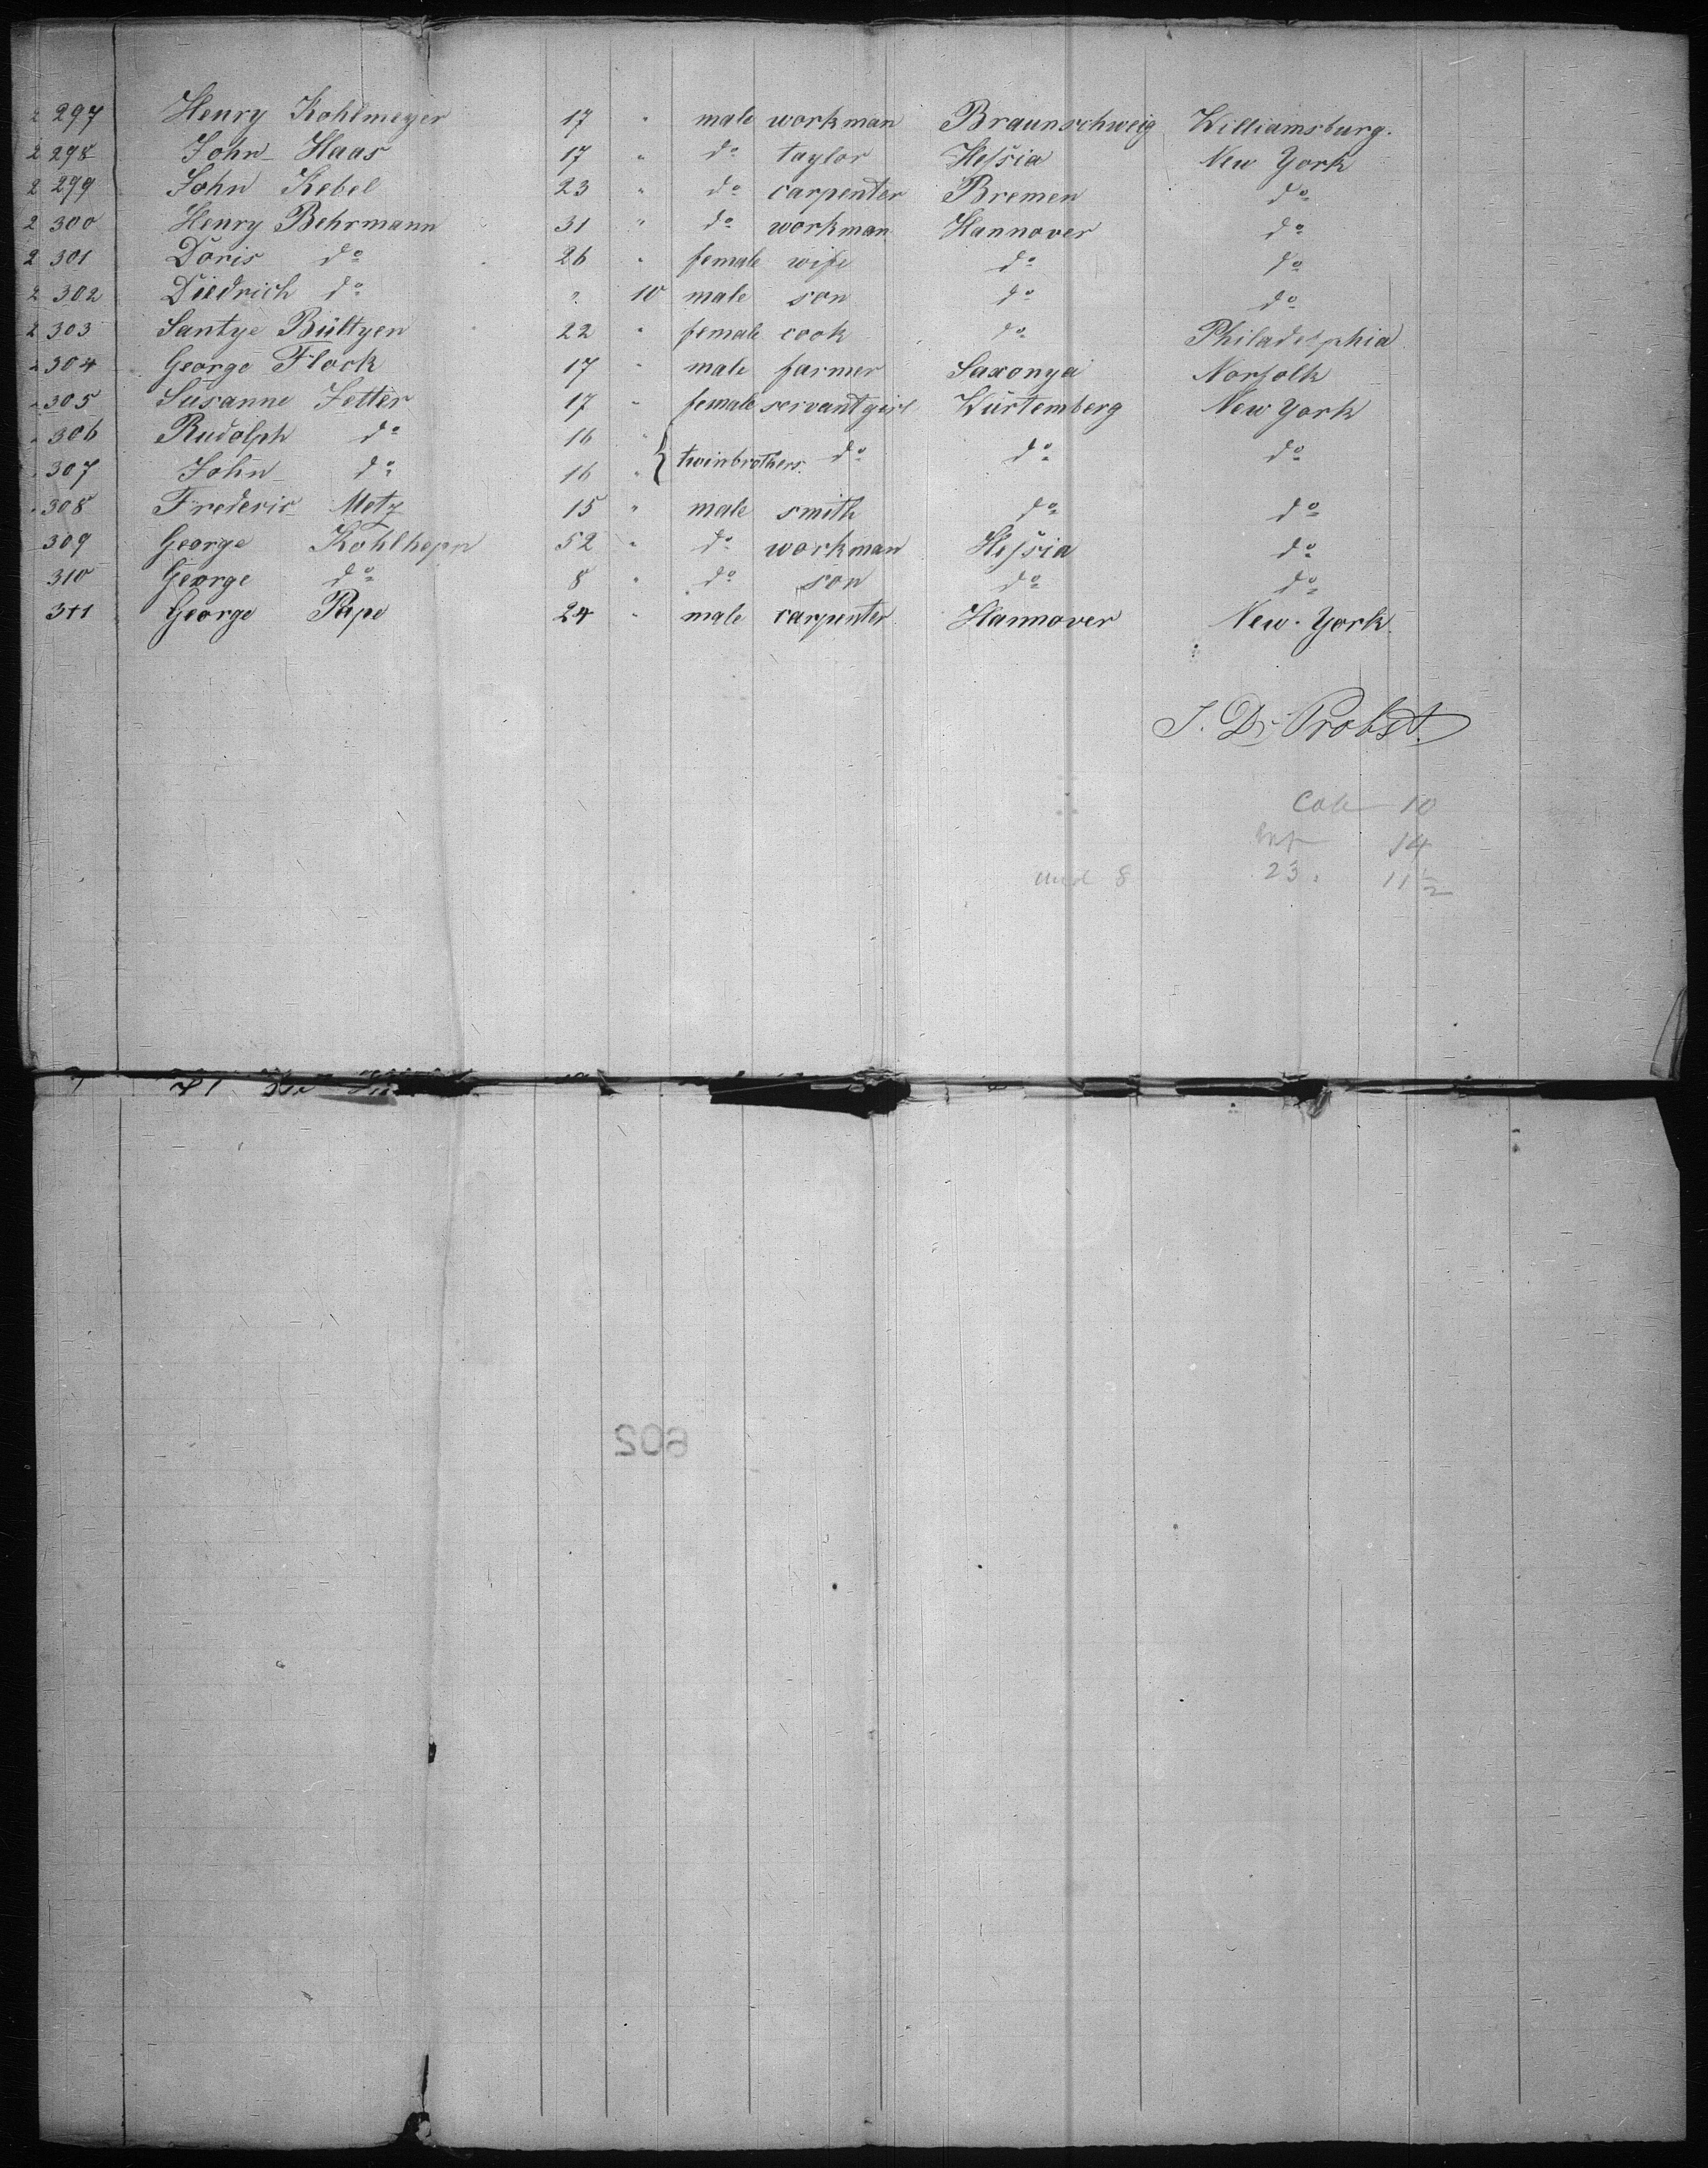 2 297 Henry Kohlmeyer 17 " male workman Braunschweig Williamsburg.
2 298 John Haas 17 " do taylor Hessia New York
2 299 John Kebel 23 " do carpenter Bremen do
2 300 Henry Behrmann 31 " do workman Hannover do
2 301 Doris do 26 " female wife do do
2 302 Diedrich do " 10 male son do do
2 303 Santye Bültyen 22 " female cook do Philadelphia
304 George Flock 17 " male farmer Saxonya Norfolk
305 Susanne Fetter 17 " female servantgirl Würtemberg New York
306 Rudolph do 16 "
307 John do 16 " { twinbrothers. do do do
308 Frederic Metz 15 " male smith do do
309 George Kohlhepp 52 " do workman Hessia do
310 George do 8 " do son do do
311 George Pape 24 " male carpenter Hannover New-York.
J. D. Probst.
Cab 10
14
8 23. 11 1/2
602